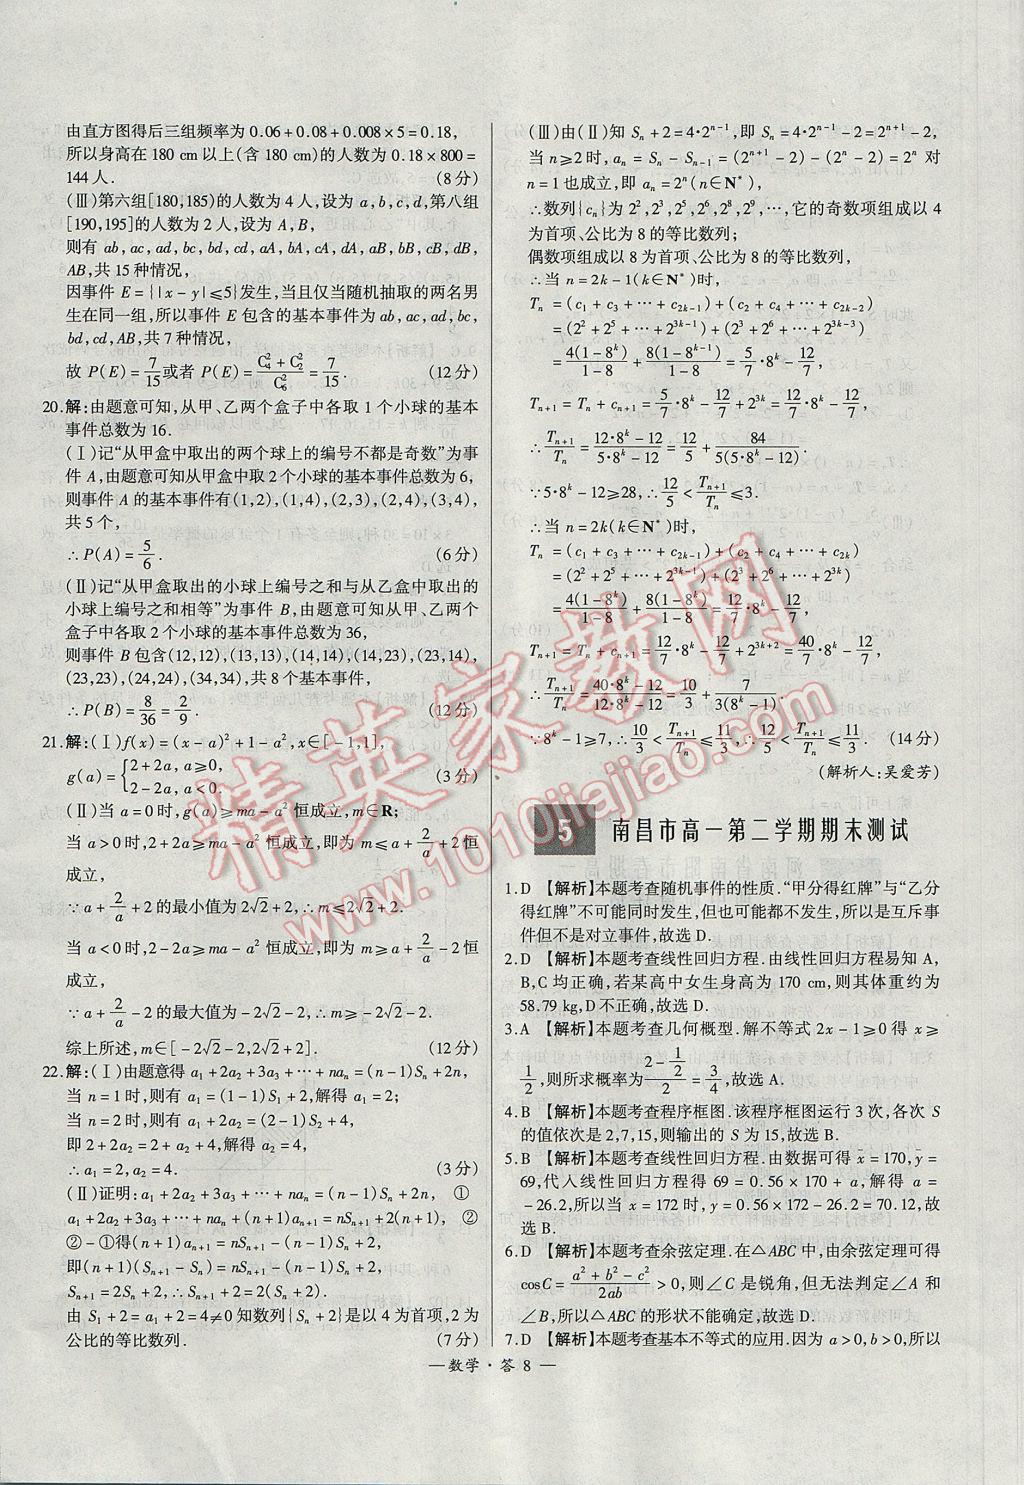 由直方图得后三组频率为0.06+0.08+0.008×5=0.18,
所以身高在180 cm以上(含180 cm)的人数为0.18×800=
144人. (8分)
(Ⅲ)第六组[180,185)的人数为4人,设为a,b,c,d,第八组
[190,195]的人数为2人,设为A,B,
则有ab,ac,ad,bc,bd,cd,aA,bA,cA,dA,aB,bB,cB,dB,
AB,共15种情况,
因事件E={|x-y|≤5}发生,当且仅当随机抽取的两名男
生在同一组,所以事件E包含的基本事件为ab,ac,ad,bc,
bd,cd,AB,共7种情况,
故P(E)=7/15或者P(E)=(C₄²+C₂²)/C₆²=7/15. (12分)
20.解:由题意可知,从甲、乙两个盒子中各取1个小球的基本
事件总数为16.
(Ⅰ)记“从甲盒中取出的两个球上的编号不都是奇数”为事
件A,由题意可知从甲盒中取2个小球的基本事件总数为6,
则事件A的基本事件有(1,2),(1,4),(2,3),(2,4),(3,4),
共5个,
∴P(A)=5/6. (6分)
(Ⅱ)记“从甲盒取出的小球上编号之和与从乙盒中取出的
小球上编号之和相等”为事件B,由题意可知从甲、乙两个
盒子中各取2个小球的基本事件总数为36,
则事件B包含(12,12),(13,13),(14,14),(14,23),(23,14),
(23,23),(24,24),(34,34),共8个基本事件,
∴P(B)=8/36=2/9. (12分)
21.解:(Ⅰ)f(x)=(x-a)²+1-a²,x∈[-1,1],
g(a)={2+2a,a≥0, 2-2a,a<0; (3分)
(Ⅱ)当a=0时,g(a)≥ma-a²恒成立,m∈R;
当a>0时,2+2a≥ma-a²恒成立,即为m≤a+2/a+2恒
成立,
∵a+2/a+2的最小值为2√2+2,∴m≤2√2+2.
当a<0时,2-2a≥ma-a²恒成立,即为m≥a+2/a-2恒
成立,
∵a+2/a-2的最大值为-2√2-2,∴m≥-2√2-2.
综上所述,m∈[-2√2-2,2√2+2]. (12分)
22.解:(Ⅰ)由题意得a₁+2a₂+3a₃+⋯+naₙ=(n-1)Sₙ+2n,
当n=1时,则有a₁=(1-1)S₁+2,解得a₁=2;
当n=2时,则有a₁+2a₂=(2-1)S₂+4,
即2+2a₂=2+a₂+4,解得a₂=4,
∴a₁=2,a₂=4. (3分)
(Ⅱ)证明:a₁+2a₂+3a₃+⋯+naₙ=(n-1)Sₙ+2n, ①
a₁+2a₂+3a₃+⋯+naₙ+(n+1)aₙ₊₁=nSₙ₊₁+2(n+1), ②
②-①得(n+1)aₙ₊₁=nSₙ₊₁-(n-1)Sₙ+2,
即(n+1)(Sₙ₊₁-Sₙ)=nSₙ₊₁-(n-1)Sₙ+2,
Sₙ₊₁=2Sₙ+2,∴Sₙ₊₁+2=2(Sₙ+2),
由S₁+2=a₁+2=4≠0知数列{Sₙ+2}是以4为首项,2为
公比的等比数列. (7分)
(Ⅲ)由(Ⅱ)知Sₙ+2=4·2ⁿ⁻¹,即Sₙ=4·2ⁿ⁻¹-2=2ⁿ⁺¹-2,
当n≥2时,aₙ=Sₙ-Sₙ₋₁=(2ⁿ⁺¹-2)-(2ⁿ-2)=2ⁿ对
n=1也成立,即aₙ=2ⁿ(n∈N*),
∴数列{cₙ}为2²,2³,2⁵,2⁶,2⁸,2⁹,⋯,它的奇数项组成以4
为首项、公比为8的等比数列;
偶数项组成以8为首项、公比为8的等比数列,
∴当n=2k-1(k∈N*)时,
Tₙ=(c₁+c₃+⋯+c₂ₖ₋₁)+(c₂+c₄+⋯+c₂ₖ₋₂)
=(2²+2⁵+⋯+2³ᵏ⁻¹)+(2³+2⁶+⋯+2³ᵏ⁻³)
=4(1-8ᵏ)/(1-8)+8(1-8ᵏ⁻¹)/(1-8)=5/7·8ᵏ-12/7,
Tₙ₊₁=Tₙ+cₙ₊₁=5/7·8ᵏ-12/7+2³ᵏ=12/7·8ᵏ-12/7,
∴Tₙ₊₁/Tₙ=(12·8ᵏ-12)/(5·8ᵏ-12)=12/5+84/(5(5·8ᵏ-12)),
∵5·8ᵏ-12≥28,∴12/5<Tₙ₊₁/Tₙ≤3.
∴当n=2k(k∈N*)时,
Tₙ=(c₁+c₃+⋯+c₂ₖ₋₁)+(c₂+c₄+⋯+c₂ₖ)
=(2²+2⁵+⋯+2³ᵏ⁻¹)+(2³+2⁶+⋯+2³ᵏ)
=4(1-8ᵏ)/(1-8)+8(1-8ᵏ)/(1-8)=12/7·8ᵏ-12/7,
Tₙ₊₁=Tₙ+cₙ₊₁=12/7·8ᵏ-12/7+2³ᵏ⁺²=40/7·8ᵏ-12/7,
∴Tₙ₊₁/Tₙ=(40·8ᵏ-12)/(12·8ᵏ-12)=10/3+7/(3(8ᵏ-1)),
∵8ᵏ-1≥7,∴10/3<Tₙ₊₁/Tₙ≤11/3,∴12/5<Tₙ₊₁/Tₙ≤11/3. (14分)
(解析人:吴爱芳)
5 南昌市高一第二学期期末测试
1.D 【解析】本题考查随机事件的性质.“甲分得红牌”与“乙分
得红牌”不可能同时发生,但也可能都不发生,所以是互斥事
件但不是对立事件,故选D.
2.D 【解析】本题考查线性回归方程.由线性回归方程易知A,
B,C均正确,若某高中女生身高为170 cm,则其体重约为
58.79 kg,D不正确,故选D.
3.A 【解析】本题考查几何概型.解不等式2x-1≥0得x≥
1/2,则所求概率为(2-1/2)/2=3/4,故选A.
4.B 【解析】本题考查程序框图.该程序框图运行3次,各次S
的值依次是2,7,15,则输出的S为15,故选B.
5.B 【解析】本题考查线性回归方程.由数据可得x̄=170,ȳ=
69,代入线性回归方程得69=0.56×170+a,解得a=
-26.2,所以当x=172时,y=0.56×172-26.2=70.12,故
选B.
6.D 【解析】本题考查余弦定理.在△ABC中,由余弦定理可得
cosC=(a²+b²-c²)/2ab>0,则∠C是锐角,但无法判定∠A和
∠B,所以△ABC的形状不能确定,故选D.
7.D 【解析】本题考查基本不等式的应用.因为a>0,b>0,所以
—数学·答 8—
精英家教网
www.1010jiajiao.com